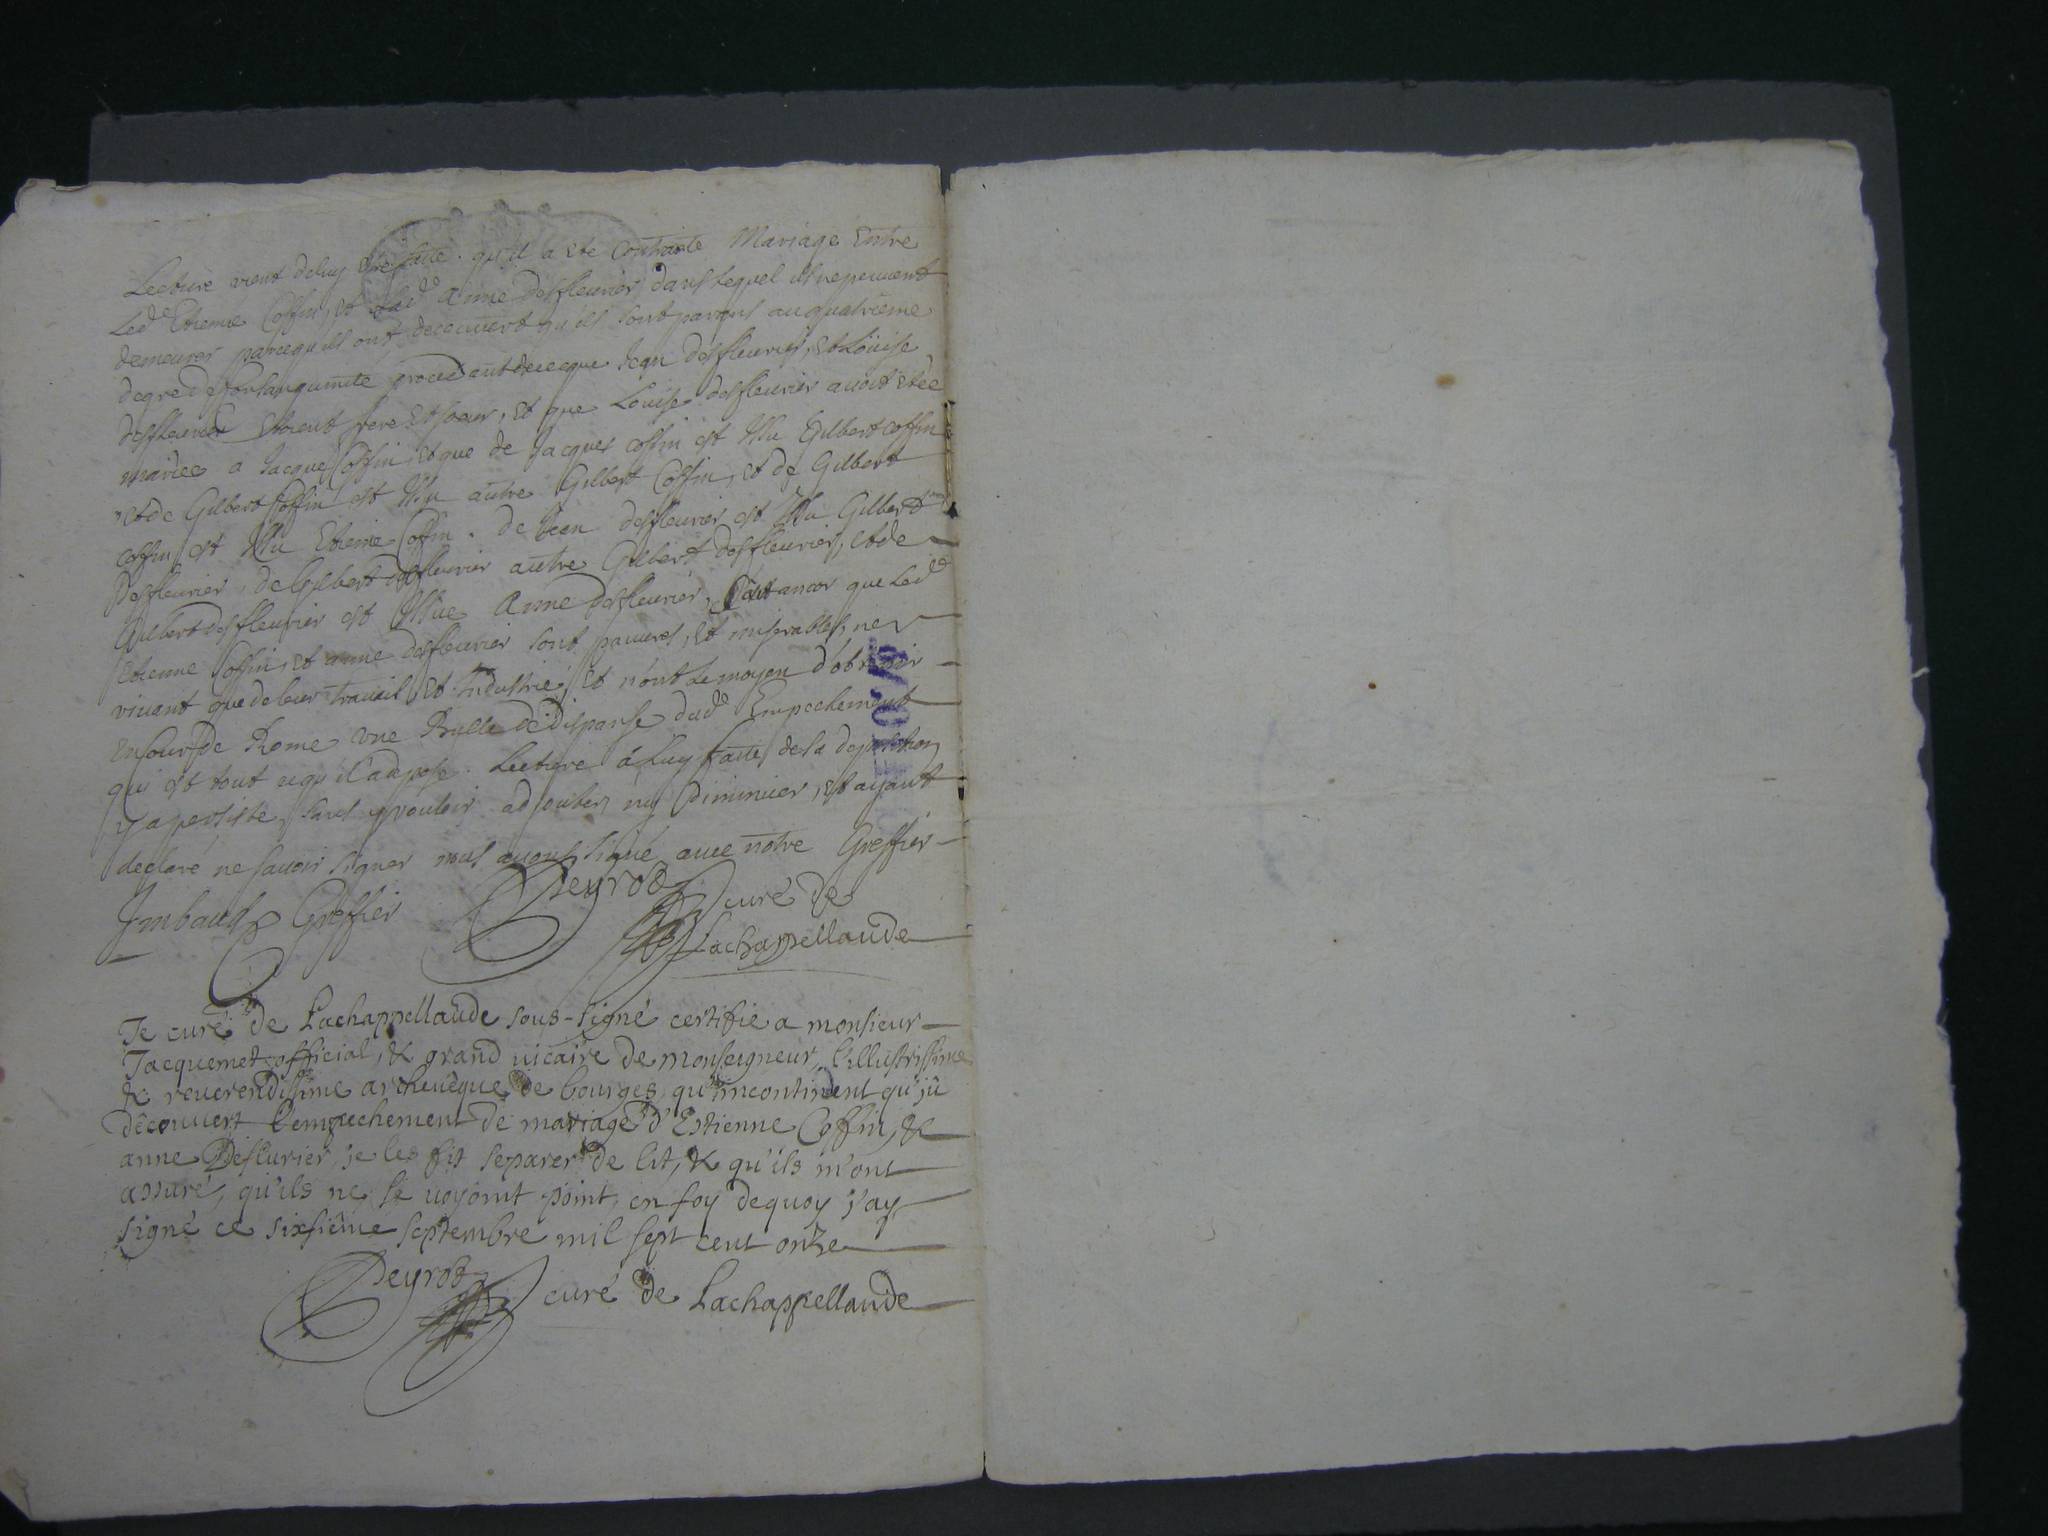 Lecture vient deluy Etre faitte. qu'il a ete contracte Mariage Entre
Led.e Etienne Coffin, et lad.e Anne desfleurier dans lequel ils ne peuvent
demeurer parcequ'ils ont decouvert qu'ils sont parens au quatrieme
degre de Consanguinité, procedant de ce que Jean desfleurier, et Loüise
desfleurier Etoient frere et soeur, et que Louise desfleurier avoit etée
mariée a Jacque Coffin, et que de Jacques coffin est Issu Gilbert coffin
et de Gilbert Coffin est Issu autre Gilbert Coffin, et de Gilbert
coffin est Issu Etienne Coffin. de Jean desfleurier est Issu Gilbert
Desfleurier, de Gilbert desfleurier autre Gilbert desfleurier, et de
Gilbert desfleurier est Issue Anne desfleurier, ancor que Led.
Etienne Coffin, et anne desfleurier sont pauvres, et miserables, ne
vivant que de leur travail et Industrie, et n'ont Le moyen d'obtenir
En Cour de Rome une Bulle de dispanse dud. Empechement
qui est tout ce qu'il a deposé. Lecture a Luy faitte de sa deposition
y a persisté sans y vouloir adjouter ny Diminuer, et ayant
declaré ne savoir signer nous avons signé avec notre Greffier
Imbaud Greffier Deyrod curé de
Lachappellaude
Je curé de Lachappellaude sous-signé certifie a monsieur
Jacquemet official, & grand vicaire de monseigneur, l'illustrissime
& reverendissime archevêque de bourges, qu'incontinent qu'jû
découvert l'empechement de mariage d'Estienne Coffin, &
anne Desflurier, je les fit separer de lit, & qu'ils m'ont
assuré, qu'ils ne se voyoint point, en foy dequoy j'ay
signé ce sixsième septembre mil sept cent onze
Deyrod curé de Lachappellaude